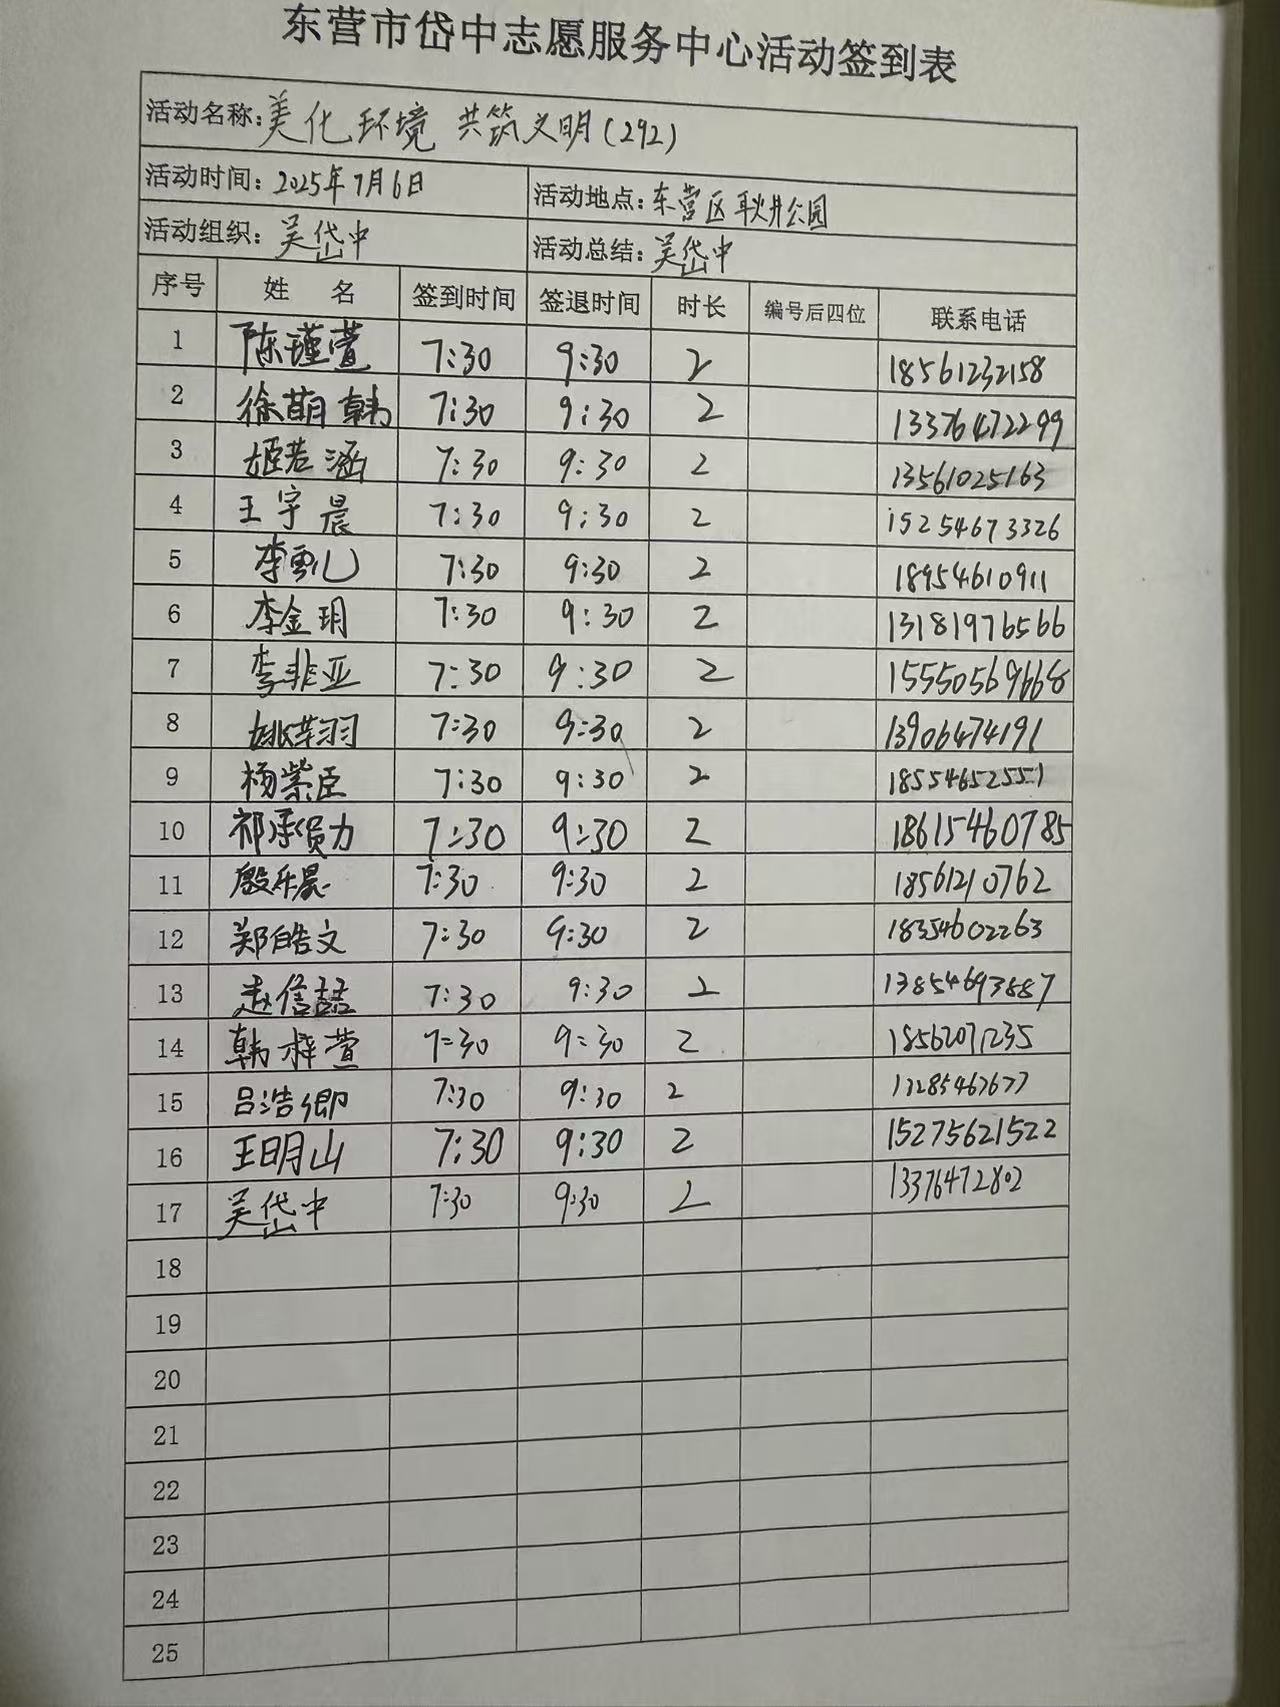 东营市岱中志愿服务中心活动签到表
活动名称:美化环境 共筑文明(292)
活动时间:2025年7月6日 活动地点:东营区耿井公园
活动组织:吴岱中 活动总结:吴岱中
序号 姓 名 签到时间 签退时间 时长 编号后四位 联系电话
1 陈瑾萱 7:30 9:30 2 18561232158
2 徐萌韩 7:30 9:30 2 13376472299
3 姬若涵 7:30 9:30 2 13561025163
4 王宇晨 7:30 9:30 2 15254673326
5 李 7:30 9:30 2 18954610911
6 李金玥 7:30 9:30 2 13181976566
7 李非亚 7:30 9:30 2 15550569668
8 姚羽 7:30 9:30 2 13906474191
9 杨紫臣 7:30 9:30 2 18554652551
10 祁力 7:30 9:30 2 18615460785
11 殷乐晨 7:30 9:30 2 18561210762
12 郑皓文 7:30 9:30 2 18354602263
13 赵信喆 7:30 9:30 2 13854693887
14 韩梓萱 7:30 9:30 2 18562071235
15 吕浩卿 7:30 9:30 2
16 王明山 7:30 9:30 2 15275621522
17 吴岱中 7:30 9:30 2 13376472802
18
19
20
21
22
23
24
25